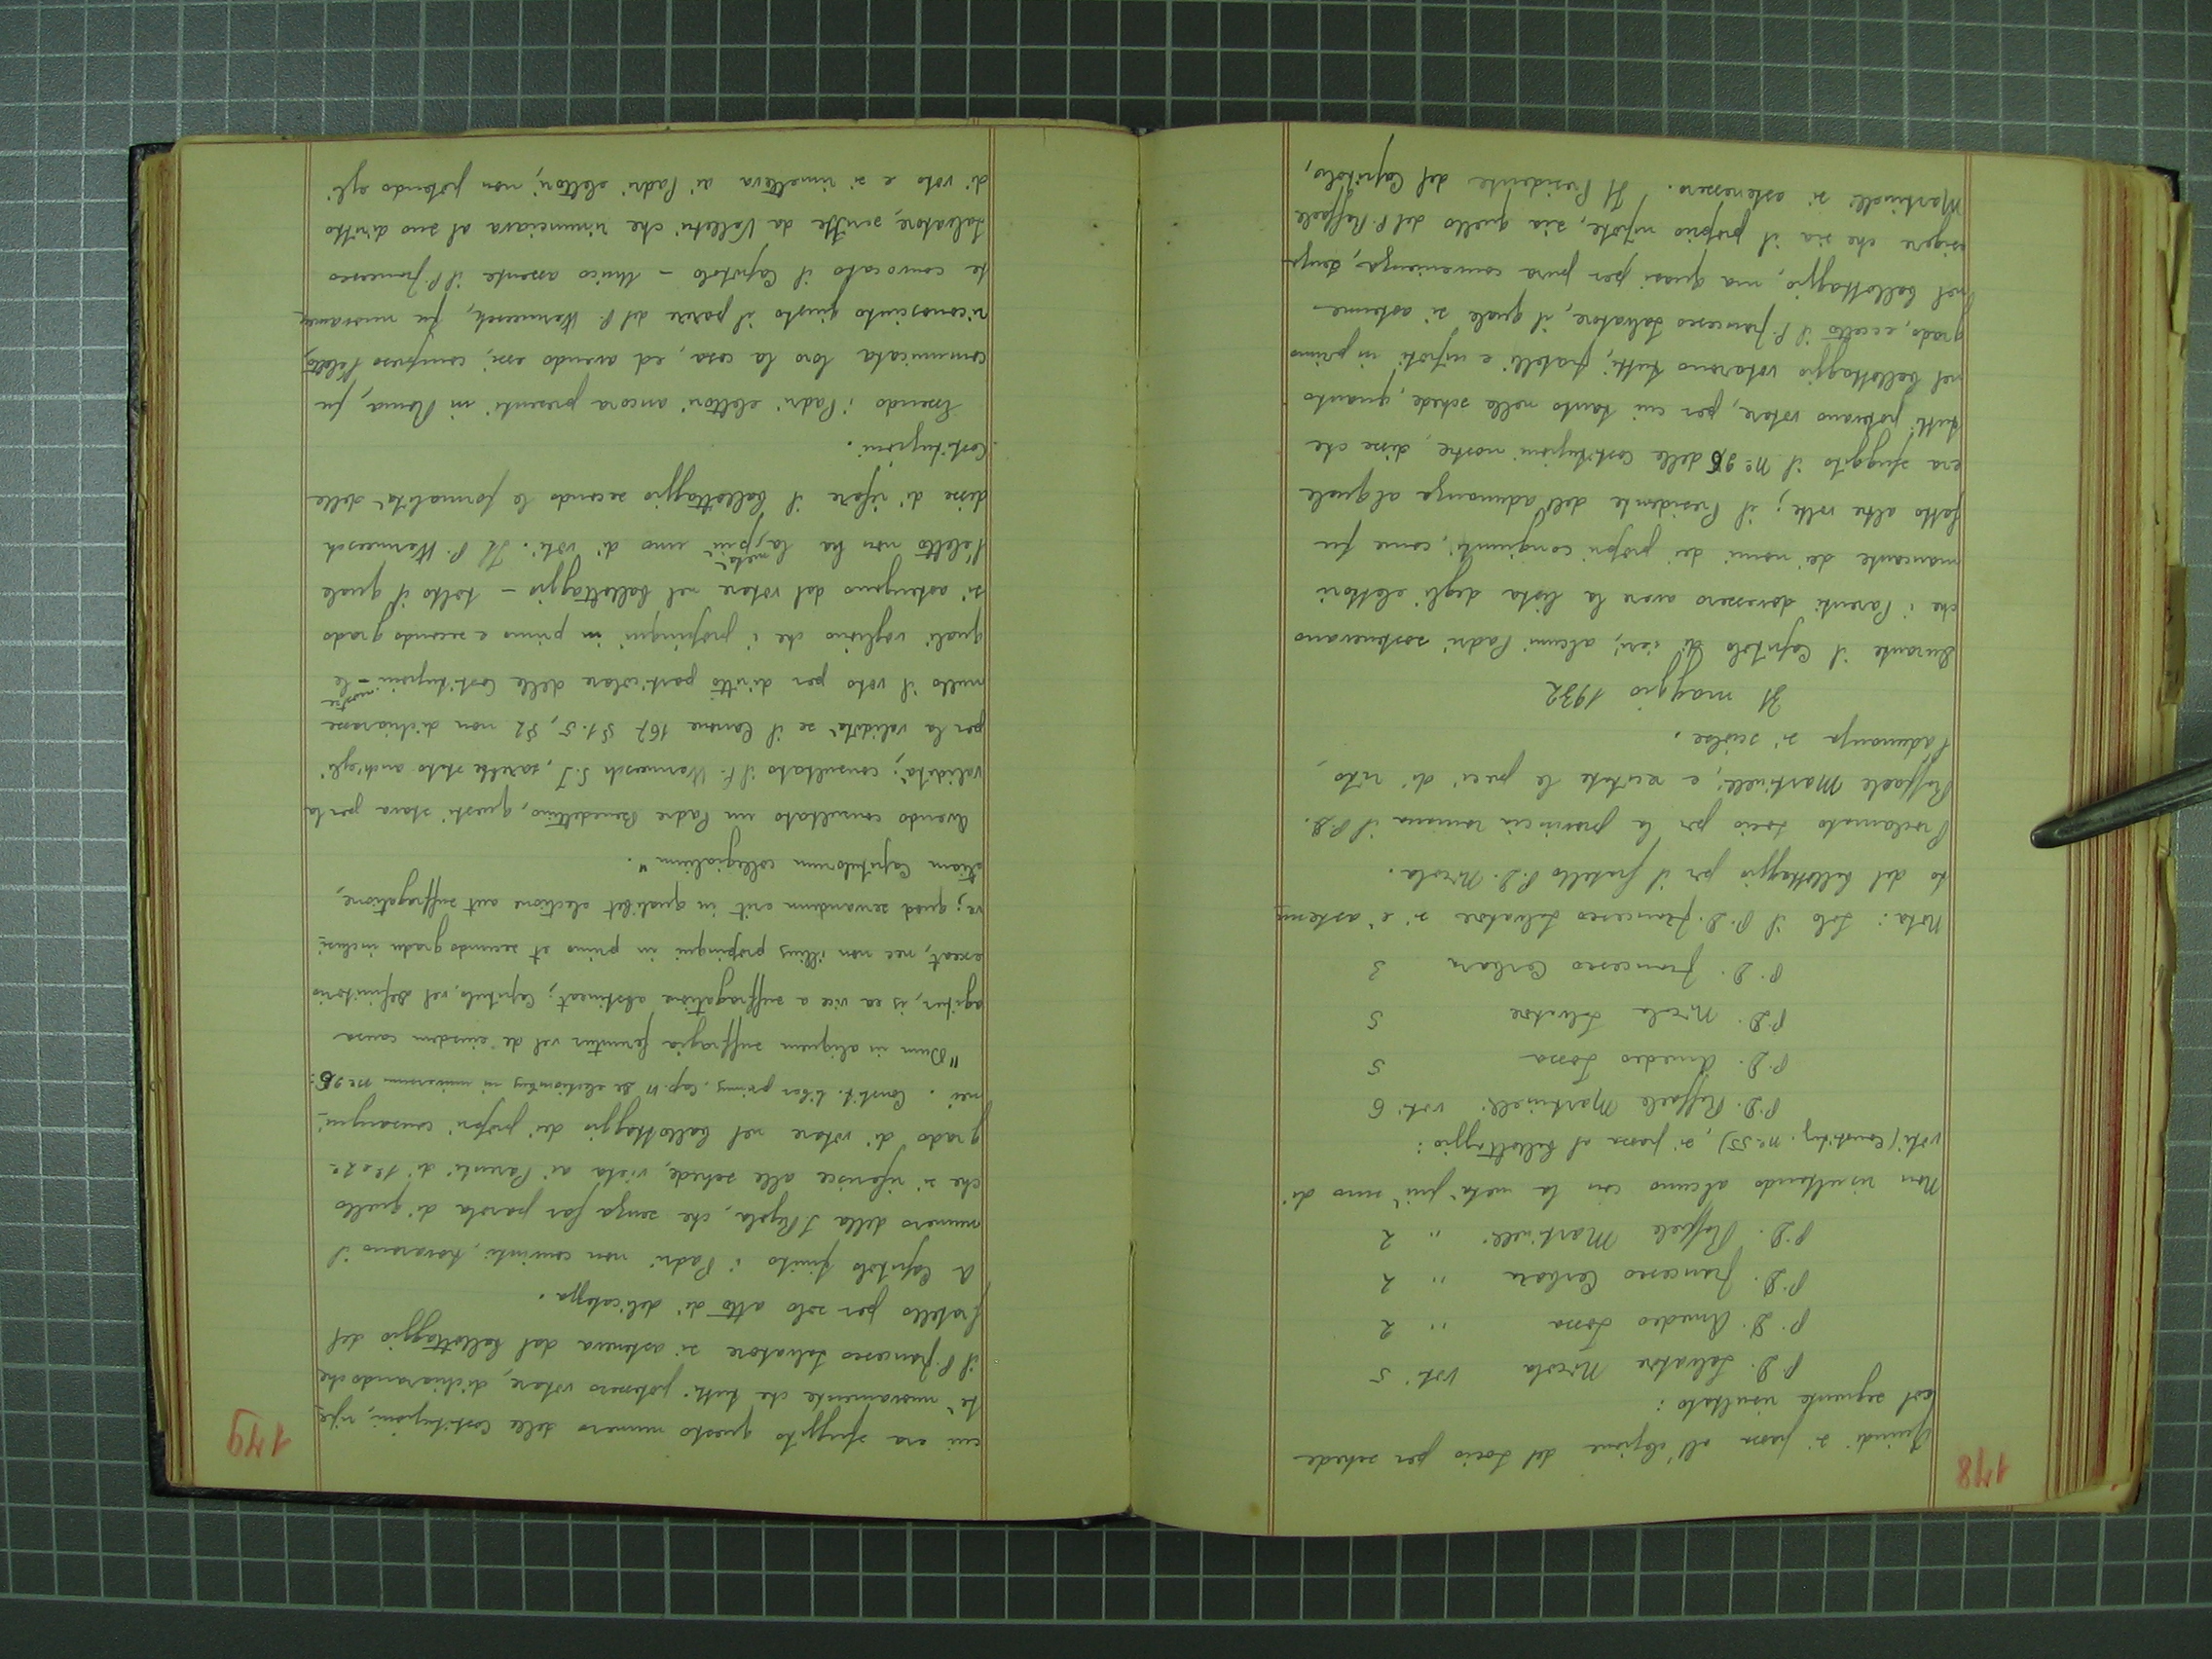 178
Quindi si passa all'elezione del Socio per schede
col seguente risultato:
P. D. Salvatore Nicola voti 5
P. D. Amedeo Sossa " 2
P. D. Francesco Cerbara " 2
P. D. Raffaele Martinelli " 2
Non risultando alcuno con la metà più uno di
voti (Constitu. nº 55), si passa al ballottaggio:
P. D. Raffaele Martinelli voti 6
P. D. Amedeo Sossa 5
P. D. Nicola Salvatore 5
P. D. Francesco Cerbara 3
Nota: Solo il P. D. Francesco Salvatore si è astenu-
to del ballottaggio per il fratello P. D. Nicola.
Proclamato socio per la provincia romana il P. D.
Raffaele Martinelli, e recitate le preci di rito,
l'adunanza si sciolse.
31 maggio 1932
Durante il Capitolo di ieri, alcuni Padri sostenevano
che i Parenti dovessero avere la lista degli elettori
mancante dei nomi dei propri congiunti, come fu
fatto altre volte; il Presidente dell'adunanza al quale
era sfuggito il Nº 96 delle Costituzioni nostre, disse che
tutti potevano votare, per cui tanto nelle schede, quanto
nel ballottaggio votarono tutti, fratelli e nipoti in primo
grado, eccetto il P. Francesco Salvatore, il quale si astenne
nel ballottaggio, ma quasi per pura convenienza,
esigere che sia il proprio nipote, sia quello del P. Raffaele
Martinelli si astenessero. Il Presidente del Capitolo,
179
cui era sfuggito questo numero delle Costituzioni, ripe-
tè nuovamente che tutti potessero votare, dichiarando che
il P. Francesco Salvatore si asteneva dal ballottaggio del
fratello per solo atto di delicatezza.
A Capitolo finito i Padri non convinti, trovarono il
numero della S. Regola, che, senza far parola di quello
che si riferisce alle schede, vieta ai Parenti di 1º e 2º
grado di votare nel ballottaggio dei propri consangui-
nei. Constit. liber primus, Cap. VI De electionibus in universum nº 96:
"Dum in aliquem suffragia feruntur vel de eiusdem causa
agitur, is ea vice a suffragatione abstineat; Capitulo, vel Definitorio
exeat, nec non illius propinqui in primo et secundo gradu inclusi-
ve; quod servandum erit in qualibet electione aut suffragatione,
etiam Capitulorum collegialium".
Avendo consultato un Padre Benedettino, questi stava per la
validità; consultato il P. Wermeesch S. J., sarebbe stato anch'egli
per la validità se il Canone 167 § 1. 5, § 2 non dichiarasse
nullo il voto per diritto particolare delle Costituzioni nostre - le
quali vogliono che i propinqui in primo e secondo grado
si astengano dal votare nel ballottaggio - tolto il quale
l'eletto non ha la metà più uno di voti. Il P. Wermeesch
disse di rifare il ballottaggio secondo le formalità delle
Costituzioni.
Essendo i Padri elettori ancora presenti in Roma, fu
comunicata loro la cosa, ed avendo essi, compreso l'eletto,
riconosciuto giusto il parere del P. Wermeesch, fu nuovamen-
te convocato il Capitolo - Unico assente il P. Francesco
Salvatore, scritte da Velletri che rinunciava al suo diritto
di voto e si rimetteva ai Padri elettori, non potendo egli